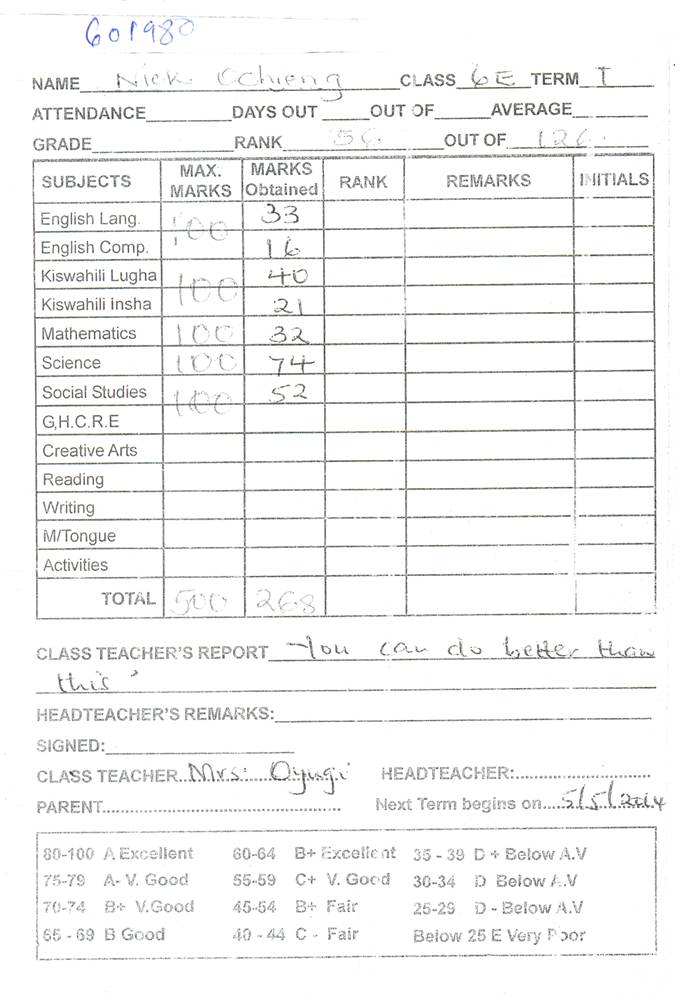 601980
NAME Nick Ochieng CLASS 6E TERM I
ATTENDANCE DAYS OUT OUT OF AVERAGE
GRADE RANK 56 OUT OF 126
SUBJECTS MAX. MARKS MARKS Obtained RANK REMARKS INITIALS
English Lang. 100 33
English Comp. 16
Kiswahili Lugha 100 40
Kiswahili Insha 21
Mathematics 100 32
Science 100 74
Social Studies 100 52
G,H.C.R.E
Creative Arts
Reading
Writing
M/Tongue
Activities
TOTAL 500 268
CLASS TEACHER'S REPORT You can do better than
this
HEADTEACHER'S REMARKS:
SIGNED:
CLASS TEACHER Mrs: Oyugi HEADTEACHER:
PARENT Next Term begins on 5/5/2014
80-100 A Excellent 60-64 B+ Excellent 35 - 39 D + Below A.V
75-79 A- V. Good 55-59 C+ V. Good 30-34 D Below A.V
70-74 B+ V.Good 45-54 B+ Fair 25-29 D - Below A.V
65 - 69 B Good 40 - 44 C - Fair Below 25 E Very Poor